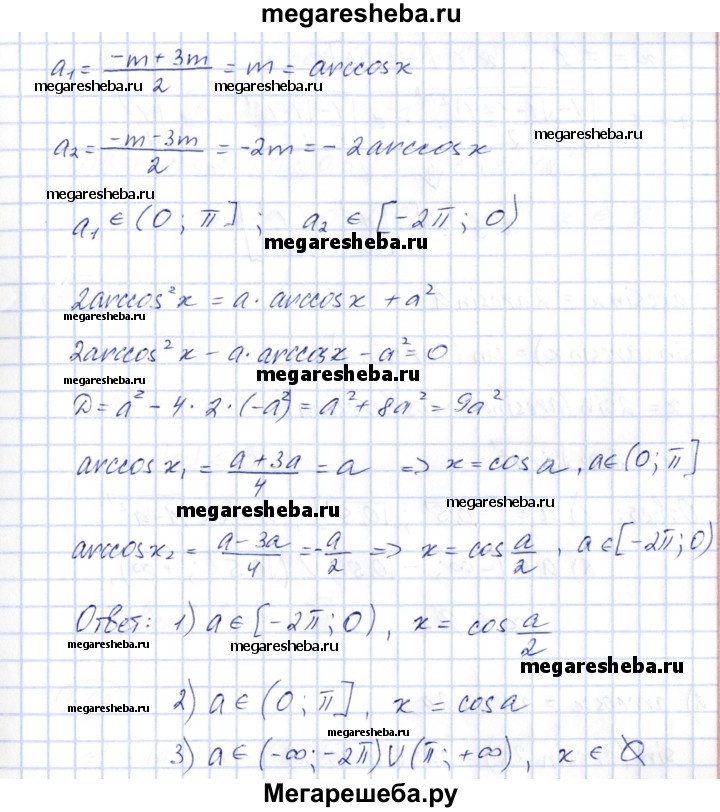 megaresheba.ru
a₁ = (-m + 3m)/2 = m = arccos x
megaresheba.ru megaresheba.ru megaresheba.ru
megaresheba.ru
a₂ = (-m - 3m)/2 = -2m = - 2arccos x
megaresheba.ru
a₁ ∈ (0; π] ; a₂ ∈ [-2π; 0)
megaresheba.ru
2arccos²x = a · arccos x + a²
megaresheba.ru
2arccos²x - a · arccos x - a² = 0
megaresheba.ru
megaresheba.ru
D = a² - 4 · 2 · (-a²) = a² + 8a² = 9a²
arccos x₁ = (a + 3a)/4 = a => x = cos a, a ∈ (0; π]
megaresheba.ru
megaresheba.ru
arccos x₂ = (a - 3a)/4 = -a/2 => x = cos a/2, a ∈ [-2π; 0)
megaresheba.ru
Ответ: 1) a ∈ [-2π; 0), x = cos a/2
megaresheba.ru megaresheba.ru
megaresheba.ru
2) a ∈ (0; π], x = cos a
megaresheba.ru
megaresheba.ru
3) a ∈ (-∞; -2π) ∪ (π; +∞), x ∈ ∅
Мегарешеба.ру